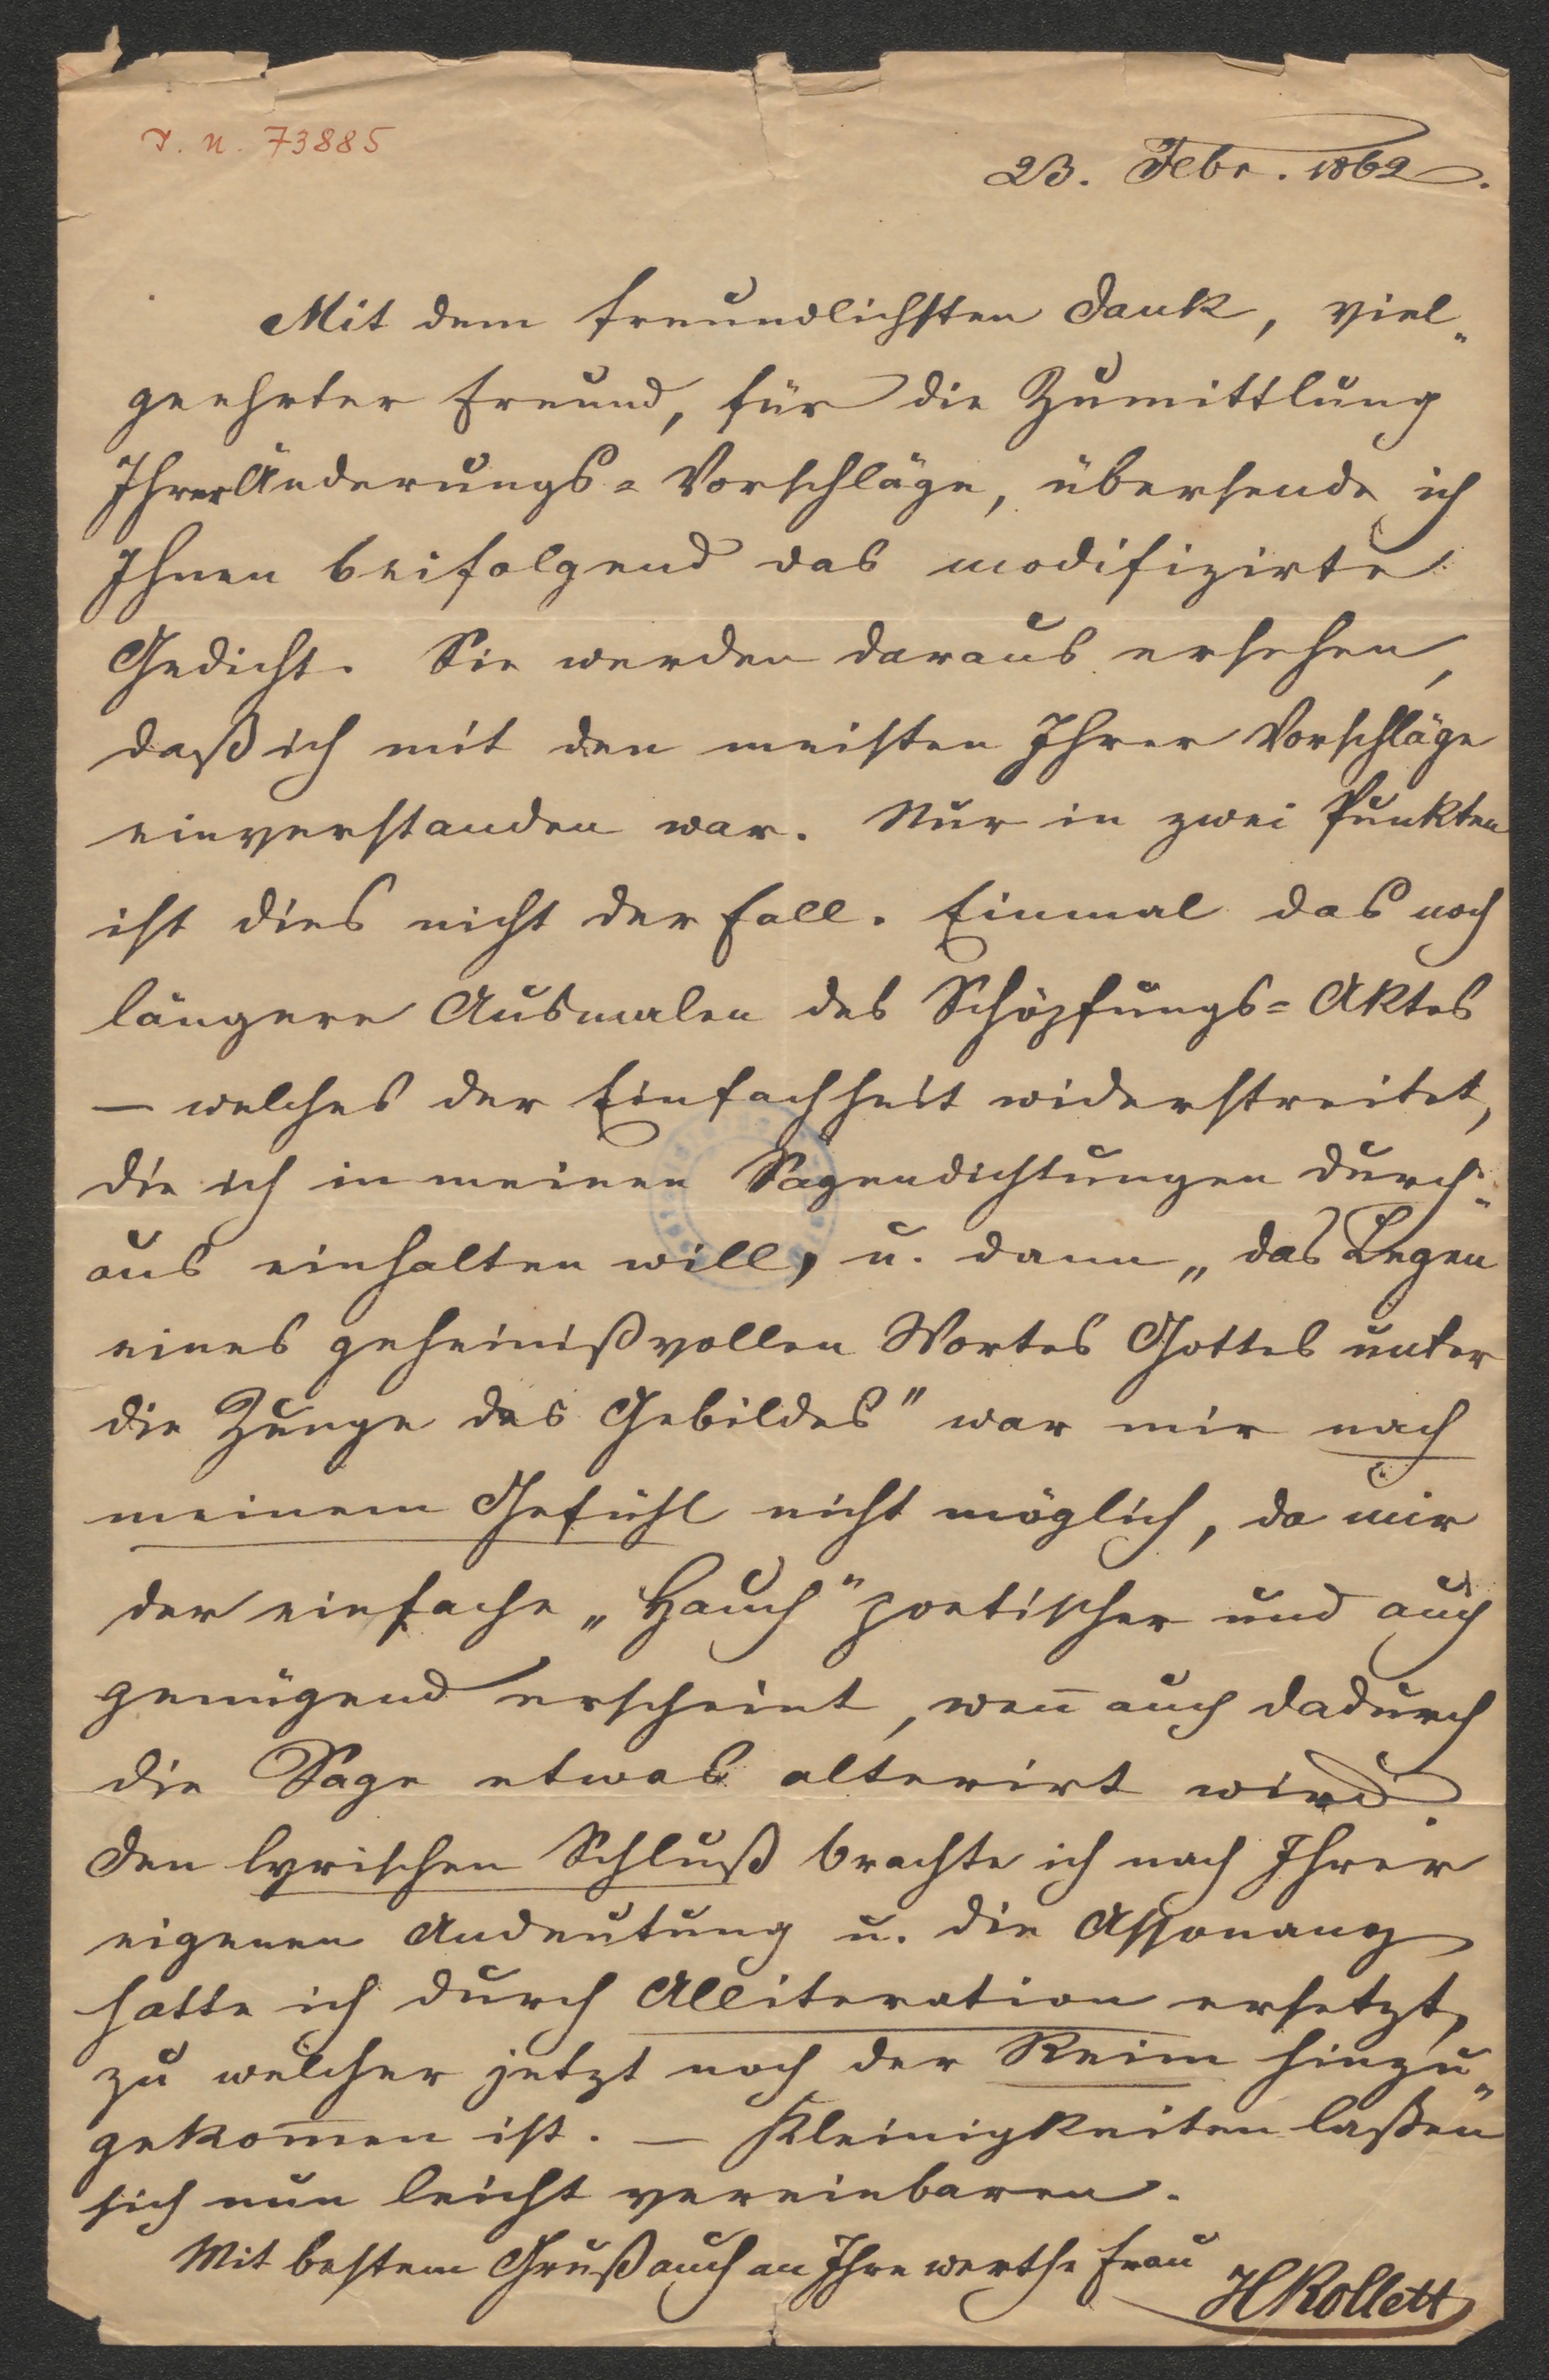 I. N. 73885
23. Febr. 1862.
Mit dem freundlichsten Dank, viel„
geehrter Freund, für die Zumittlung
Ihrer Änderungs=Vorschläge, übersende ich
Ihnen beifolgend das modifizirte
Gedicht. Sie werden daraus ersehen,
daß ich mit den meisten Ihrer Vorschläge
einverstanden war. Nur in zwei Punkten
ist dies nicht der Fall. Einmal das noch
längere Ausmalen des Schöpfungs=Aktes
— welches der Einfachheit widerstreitet,
die ich in meinen Sagendichtungen durch„
aus einhalten will, u. dann „das Legen
eines geheimißvollen Wortes Gottes unter
die Zunge des Gebildes" war mir nach
meinem Gefühl nicht möglich, da mir
der einfache „Hauch" poetischer und auch
genügend erscheint, weñ auch dadurch
die Sage etwas alterirt wird.
Den lyrischen Schluß brachte ich nach Ihrer
eigenen Andeutung u. die Assonanz
hatte ich durch Alliteration ersetzt,
zu welcher jetzt noch der Reim hinzu„
gekom̅en ist. — Kleinigkeiten laßen
sich nun leicht vereinbaren.
Mit bestem Gruß auch an Ihre werthe Frau
HRollett